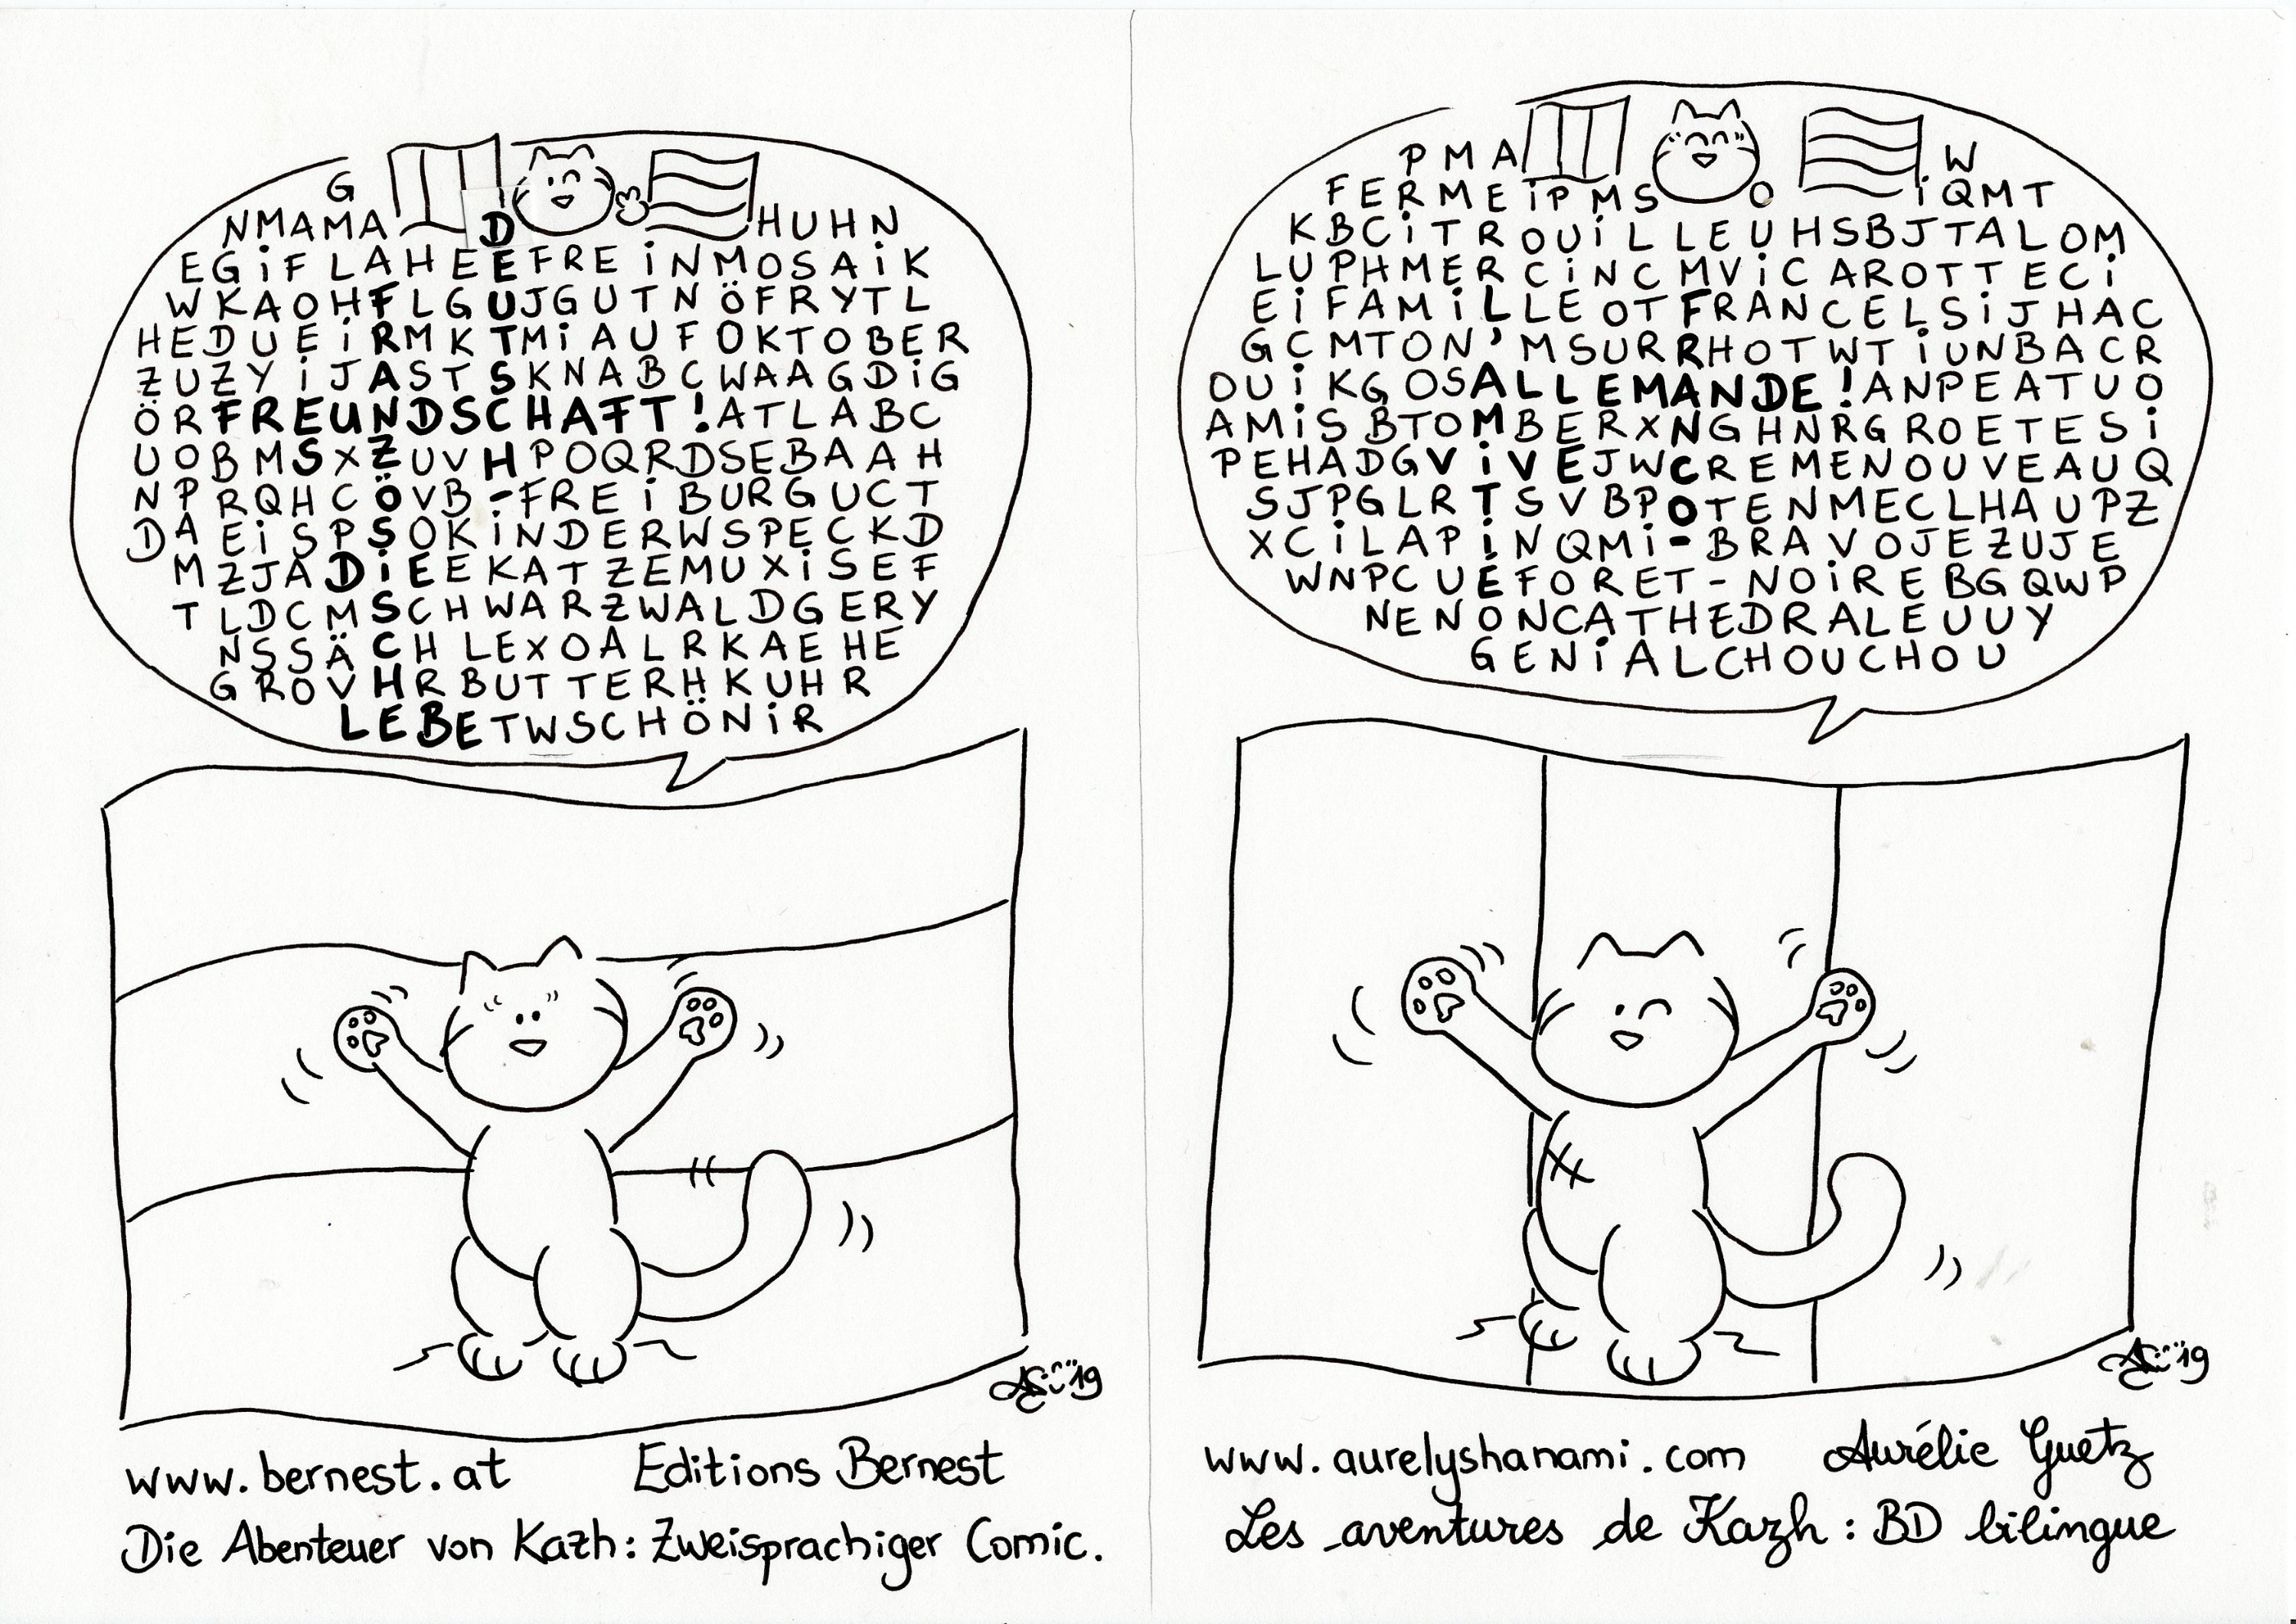 G
NMAMA D HUHN
EGiFLAHEEEFREiNMOSAiK
WKAOHFLGUJGUTNÖFRYTL
HEDUEiRMKTMiAUFOKTOBER
ZUZYiJASTSKNABCWAAGDiG
ÖRFREUNDSCHAFT!ATLABC
UOBMSXZUVHPOQRDSEBAAH
NPRQHCÖVB-FREiBURGUCT
DAEiSPSOKiNDERWSPECKD
MZJADiEEKATZEMUXiSEF
TLDCMSCHWARZWALDGERY
NSSÄCHLEXOALRKAEHE
GROVHRBUTTERHKUHR
LEBETWSCHÖNiR
www.bernest.at Editions Bernest
Die Abenteuer von Kazh: Zweisprachiger Comic.
PMA W
FERMEiPMS O iQMT
KBCiTROUiLLEUHSBJTALOM
LUPHMERCiNCMViCAROTTECi
EiFAMiLLEOTFRANCELSiJHAC
GCMTON'MSURRHOTWTiUNBACR
OUiKGOSALLEMANDE!ANPEATUO
AMiSBTOMBERXNGHNRGROETESi
PEHADGViVEJWCREMENOUVEAUQ
SJPGLRTSVBPOTENMECLHAUPZ
XCiLAPiNQMi-BRAVOJEZUJE
WNPCUÉFORET-NOiREBGQWP
NENONCATHEDRALEUUY
GENiALCHOUCHOU
www.aurelyshanami.com Aurélie Guetz
Les aventures de Kazh : BD bilingue